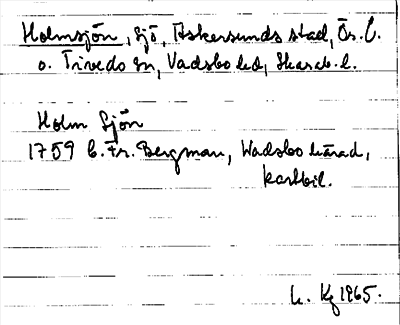 Holmsjön, sjö, Askersunds stad, Ör. l.
o. Tivedo sn, Vadsbo hd, Skarab. l.
Holm Sjön
1759 C. Fr. Bergman, Wadsbo härad,
kartbil.
L. Kg 1965.